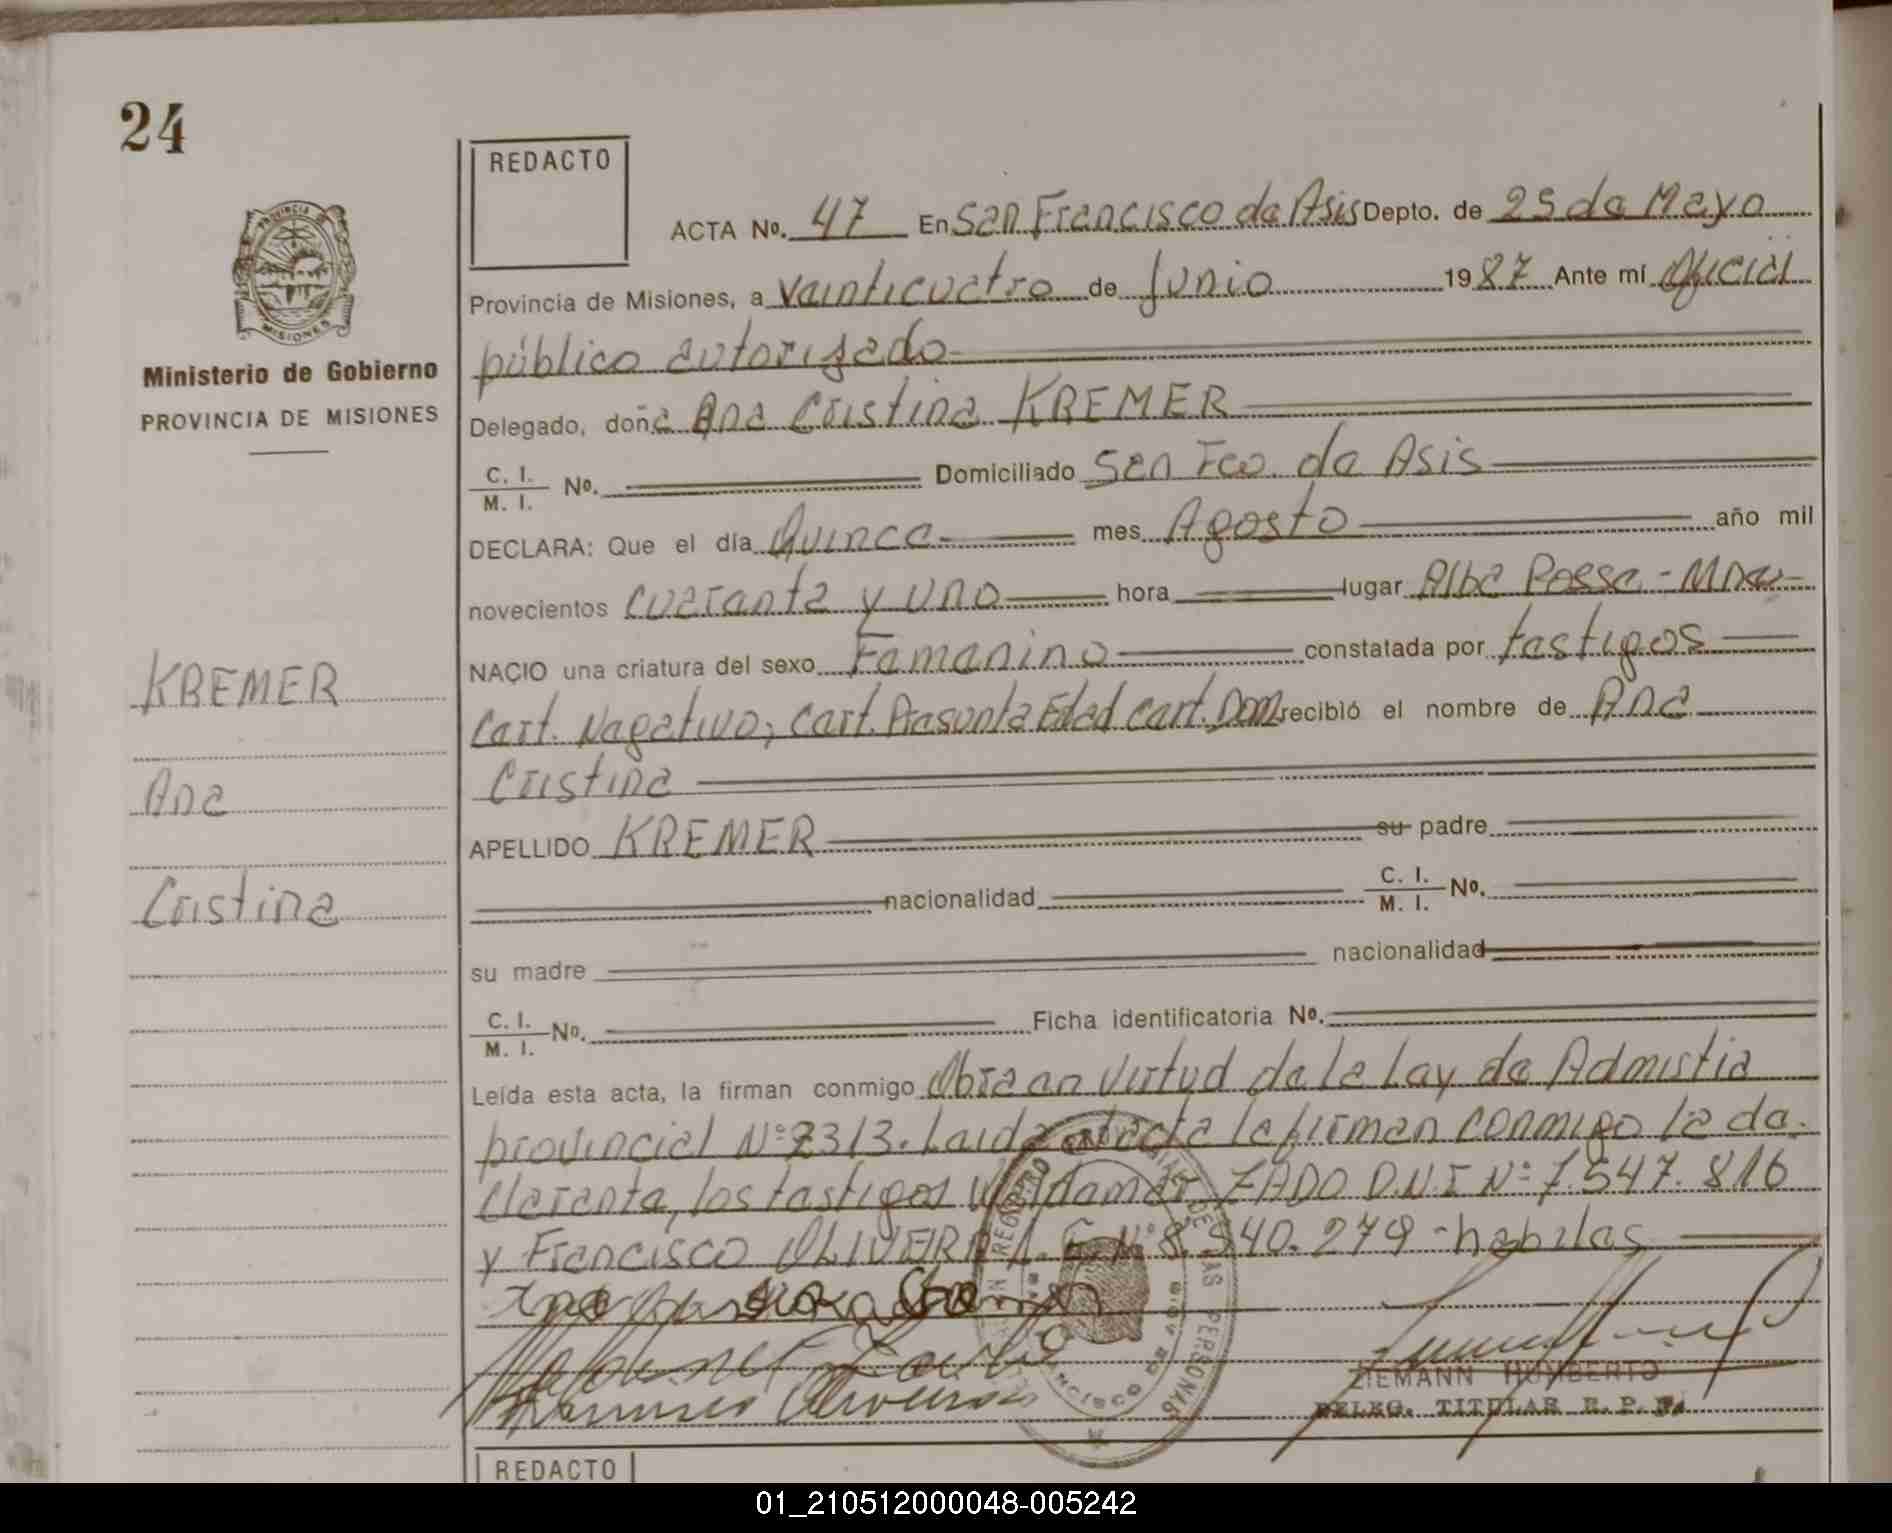 24
REDACTO
ACTA No. 47 En San Francisco de Asis Depto. de 25 de Mayo
PROVINCIA DE
MISIONES
Provincia de Misiones, a veinticuatro de Junio 1987 Ante mí Oficial
público autorizado
Ministerio de Gobierno
PROVINCIA DE MISIONES
Delegado, doña Ana Cristina KREMER
C. I.
M. I. No. Domiciliado San Fco. de Asis
DECLARA: Que el día Quince mes Agosto año mil
novecientos cuaranta y uno hora lugar Alba Posse - Mnes
NACIO una criatura del sexo Femenino constatada por testigos
KREMER
Cert. Negativo; Cert. Presunta Edad Cert. Dom. recibió el nombre de Ana
Cristina
Ana
APELLIDO KREMER su padre
Cristina
nacionalidad C. I.
M. I. No.
su madre nacionalidad
C. I.
M. I. No. Ficha identificatoria No.
Leída esta acta, la firman conmigo Obra en virtud de la Ley de Admistia
provincial Nº 2313. Leida acta la firman conmigo la de-
clarenta, los testigos Waldemar ZADO D.N.I Nº 7.547.816
y Francisco OLIVEIRA Nº 8.540.279 - habiles
ZIEMANN HUMBERTO
DELEG. TITULAR R. P. P.
REGISTRO DE LAS PERSONAS
REDACTO
01_210512000048-005242